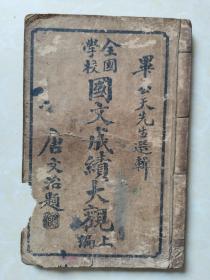 畢公天先生選輯
全國學校
國文成績大觀
上編
唐文治題